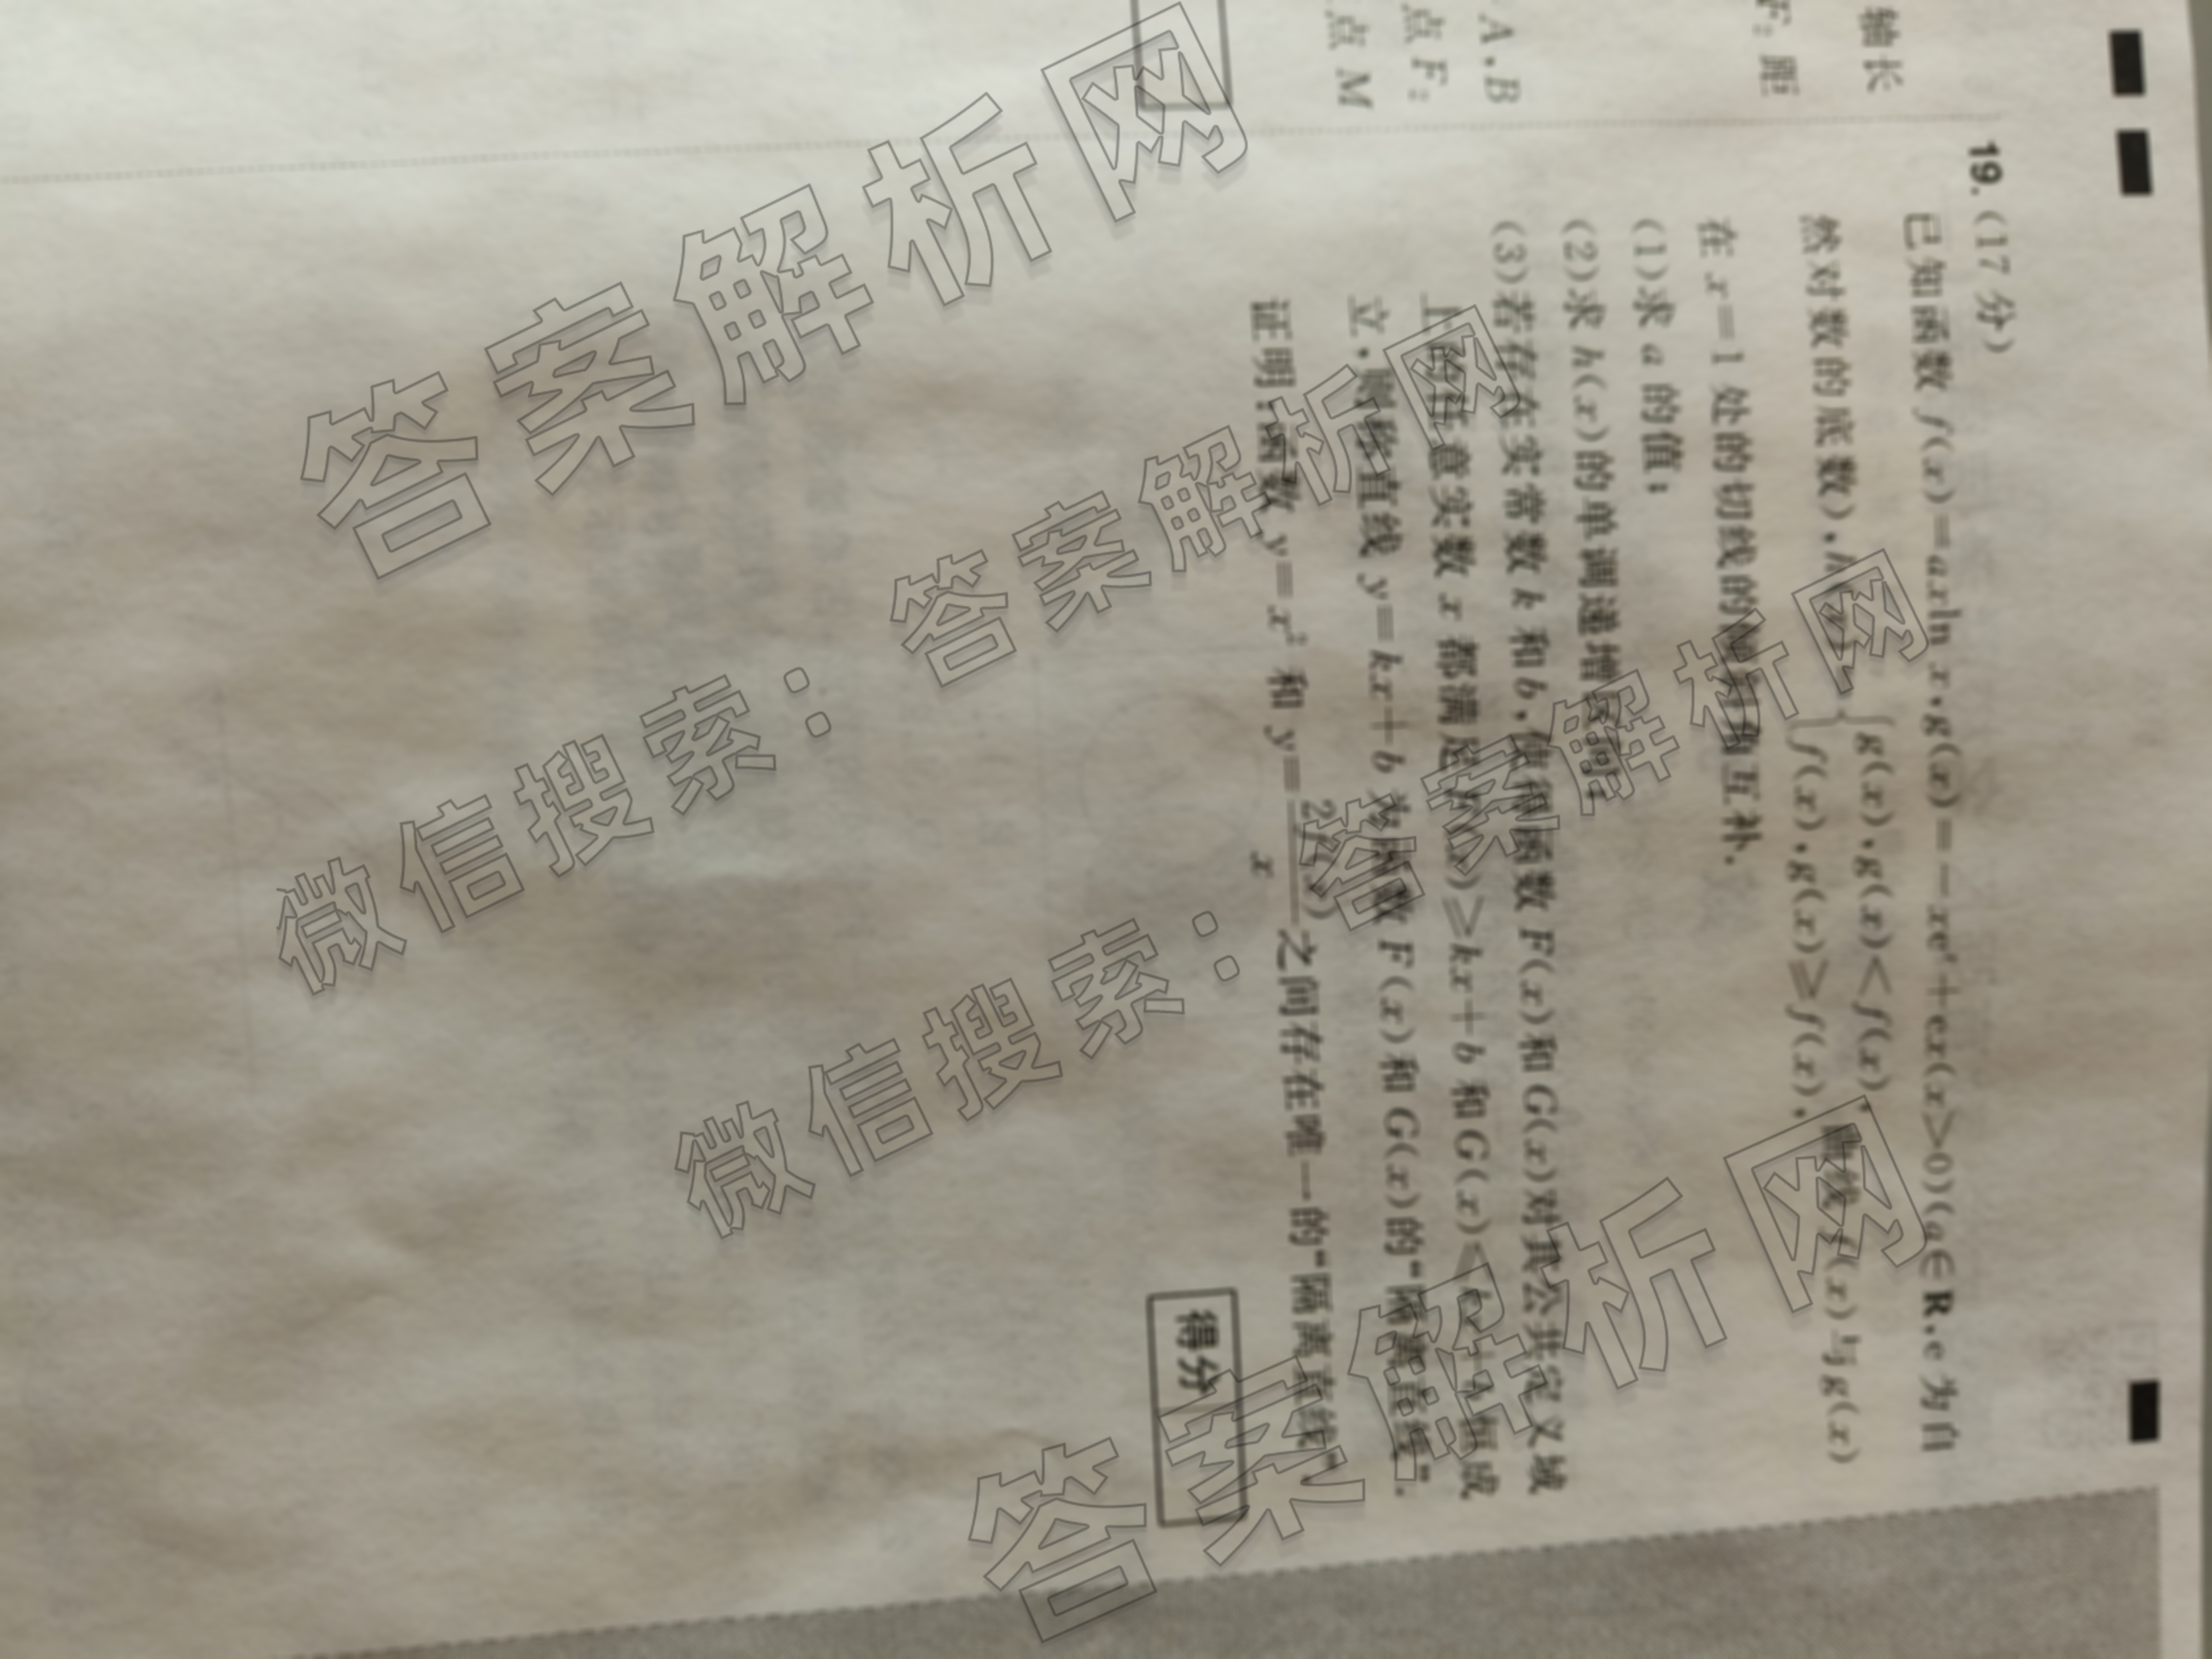 轴长
F; 距
A,B
点 F;
点 M
19. (17 分)
已知函数 f(x)=axln x,g(x)=-xeˣ+ex(x>0)(a∈R,e 为自
然对数的底数),h(x)= { g(x),g(x)<f(x),
f(x),g(x)≥f(x), 曲线 f(x)与 g(x)
在 x=1 处的切线的倾斜角互补.
(1)求 a 的值;
(2)求 h(x)的单调递增区间;
(3)若存在实常数 k 和 b,使得函数 F(x)和 G(x)对其公共定义域
上的任意实数 x 都满足 F(x)≥kx+b 和 G(x)≤kx+b 恒成
立,则称直线 y=kx+b 为函数 F(x)和 G(x)的“隔离直线”.
证明:函数 y=x² 和 y=2f(x)/x 之间存在唯一的“隔离直线”.
得分
答案解析网
微信搜索:答案解析网
微信搜索:答案解析网
答案解析网